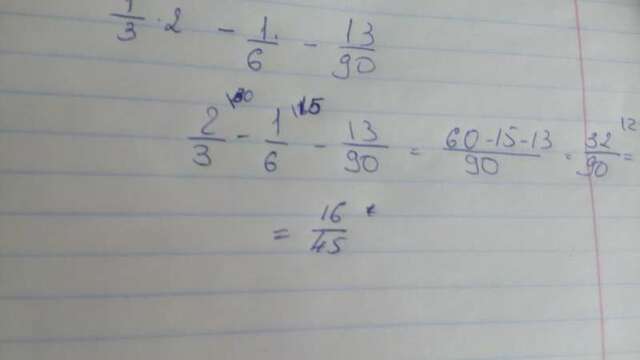 1/3 · 2 - 1/6 - 13/90
2/3 \30 - 1/6 \15 - 13/90 = 60-15-13/90 = 32/90 =
= 16/45